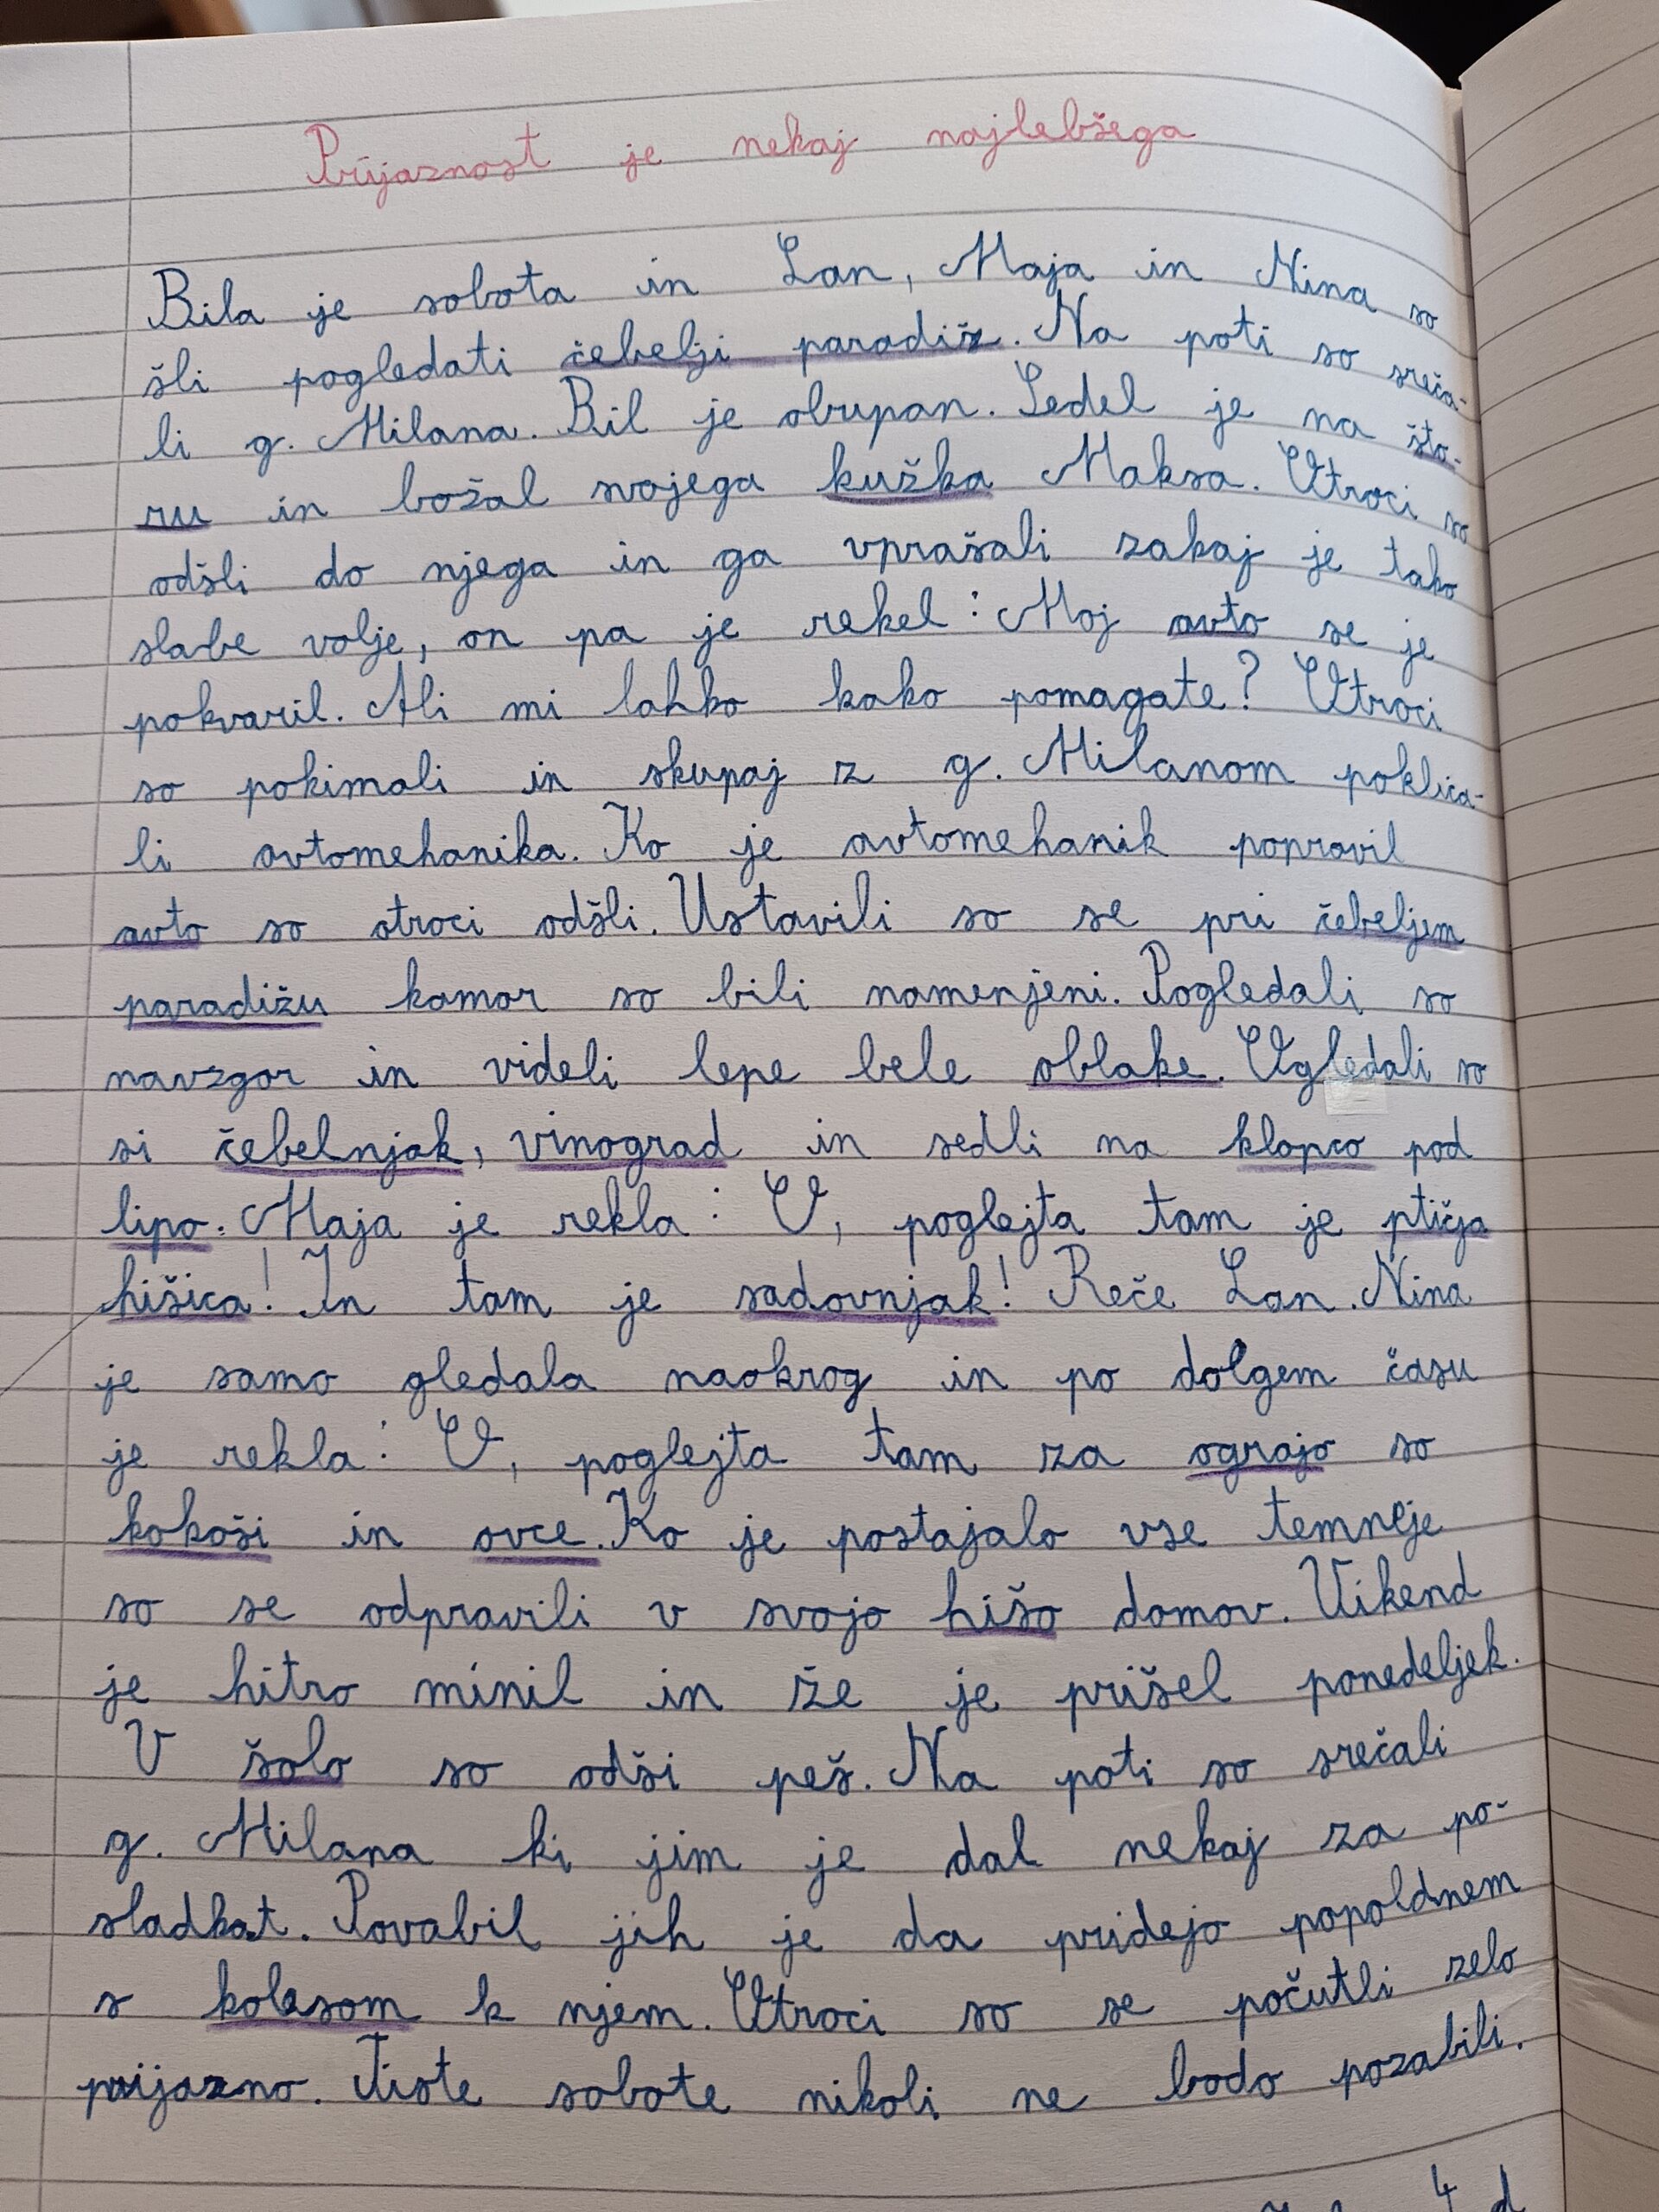 Prijaznost je nekaj najlebšega
Bila je sobota in Lan, Maja in Nina so
šli pogledati čebelji paradiž. Na poti so sreča-
li g. Milana. Bil je obupan. Sedel je na što-
ru in božal svojega kužka Maksa. Otroci so
odšli do njega in ga vprašali zakaj je tako
slabe volje, on pa je rekel: Moj avto se je
pokvaril. Ali mi lahko kako pomagate? Otroci
so pokimali in skupaj z g. Milanom poklica-
li avtomehanika. Ko je avtomehanik popravil
avto so otroci odšli. Ustavili so se pri čebeljem
paradižu kamor so bili namenjeni. Pogledali so
navzgor in videli lepe bele oblake. Ogledali so
si čebelnjak, vinograd in sedli na klopco pod
lipo. Maja je rekla: O, poglejta tam je ptičja
hišica! In tam je sadovnjak! Reče Lan. Nina
je samo gledala naokrog in po dolgem času
je rekla: O, poglejta tam za ograjo so
kokoši in ovce. Ko je postajalo vse temneje
so se odpravili v svojo hišo domov. Vikend
je hitro minil in že je prišel ponedeljek.
V šolo so odši peš. Na poti so srečali
g. Milana ki jim je dal nekaj za po-
sladkat. Povabil jih je da pridejo popoldnem
s kolesom k njem. Otroci so se počutli zelo
prijazno. Tiste sobote nikoli ne bodo pozabili.